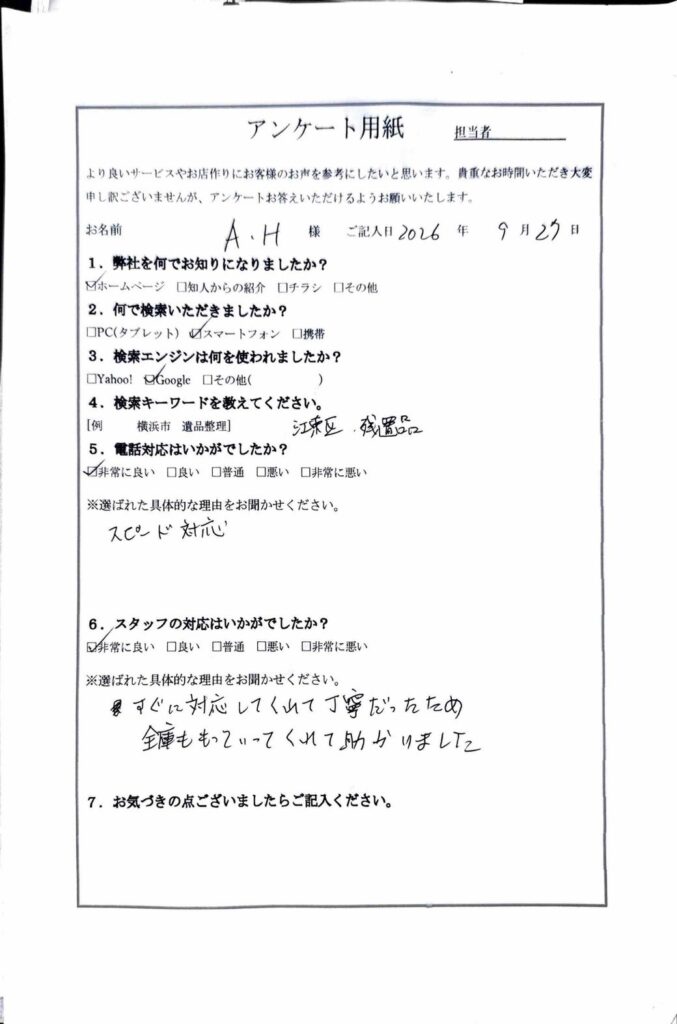 アンケート用紙 担当者
より良いサービスやお店作りにお客様のお声を参考にしたいと思います。貴重なお時間いただき大変
申し訳ございませんが、アンケートお答えいただけるようお願いいたします。
お名前 A.H 様 ご記入日 2026 年 9 月 27 日
1．弊社を何でお知りになりましたか？
☑ホームページ □知人からの紹介 □チラシ □その他
2．何で検索いただきましたか？
□PC(タブレット) ☑スマートフォン □携帯
3．検索エンジンは何を使われましたか？
□Yahoo! ☑Google □その他( )
4．検索キーワードを教えてください。
[例 横浜市 遺品整理] 江東区 . 残置品
5．電話対応はいかがでしたか？
☑非常に良い □良い □普通 □悪い □非常に悪い
※選ばれた具体的な理由をお聞かせください。
スピード対応
6．スタッフの対応はいかがでしたか？
☑非常に良い □良い □普通 □悪い □非常に悪い
※選ばれた具体的な理由をお聞かせください。
すぐに対応してくれて丁寧だったため
金庫ももっていってくれて助かりました
7．お気づきの点ございましたらご記入ください。